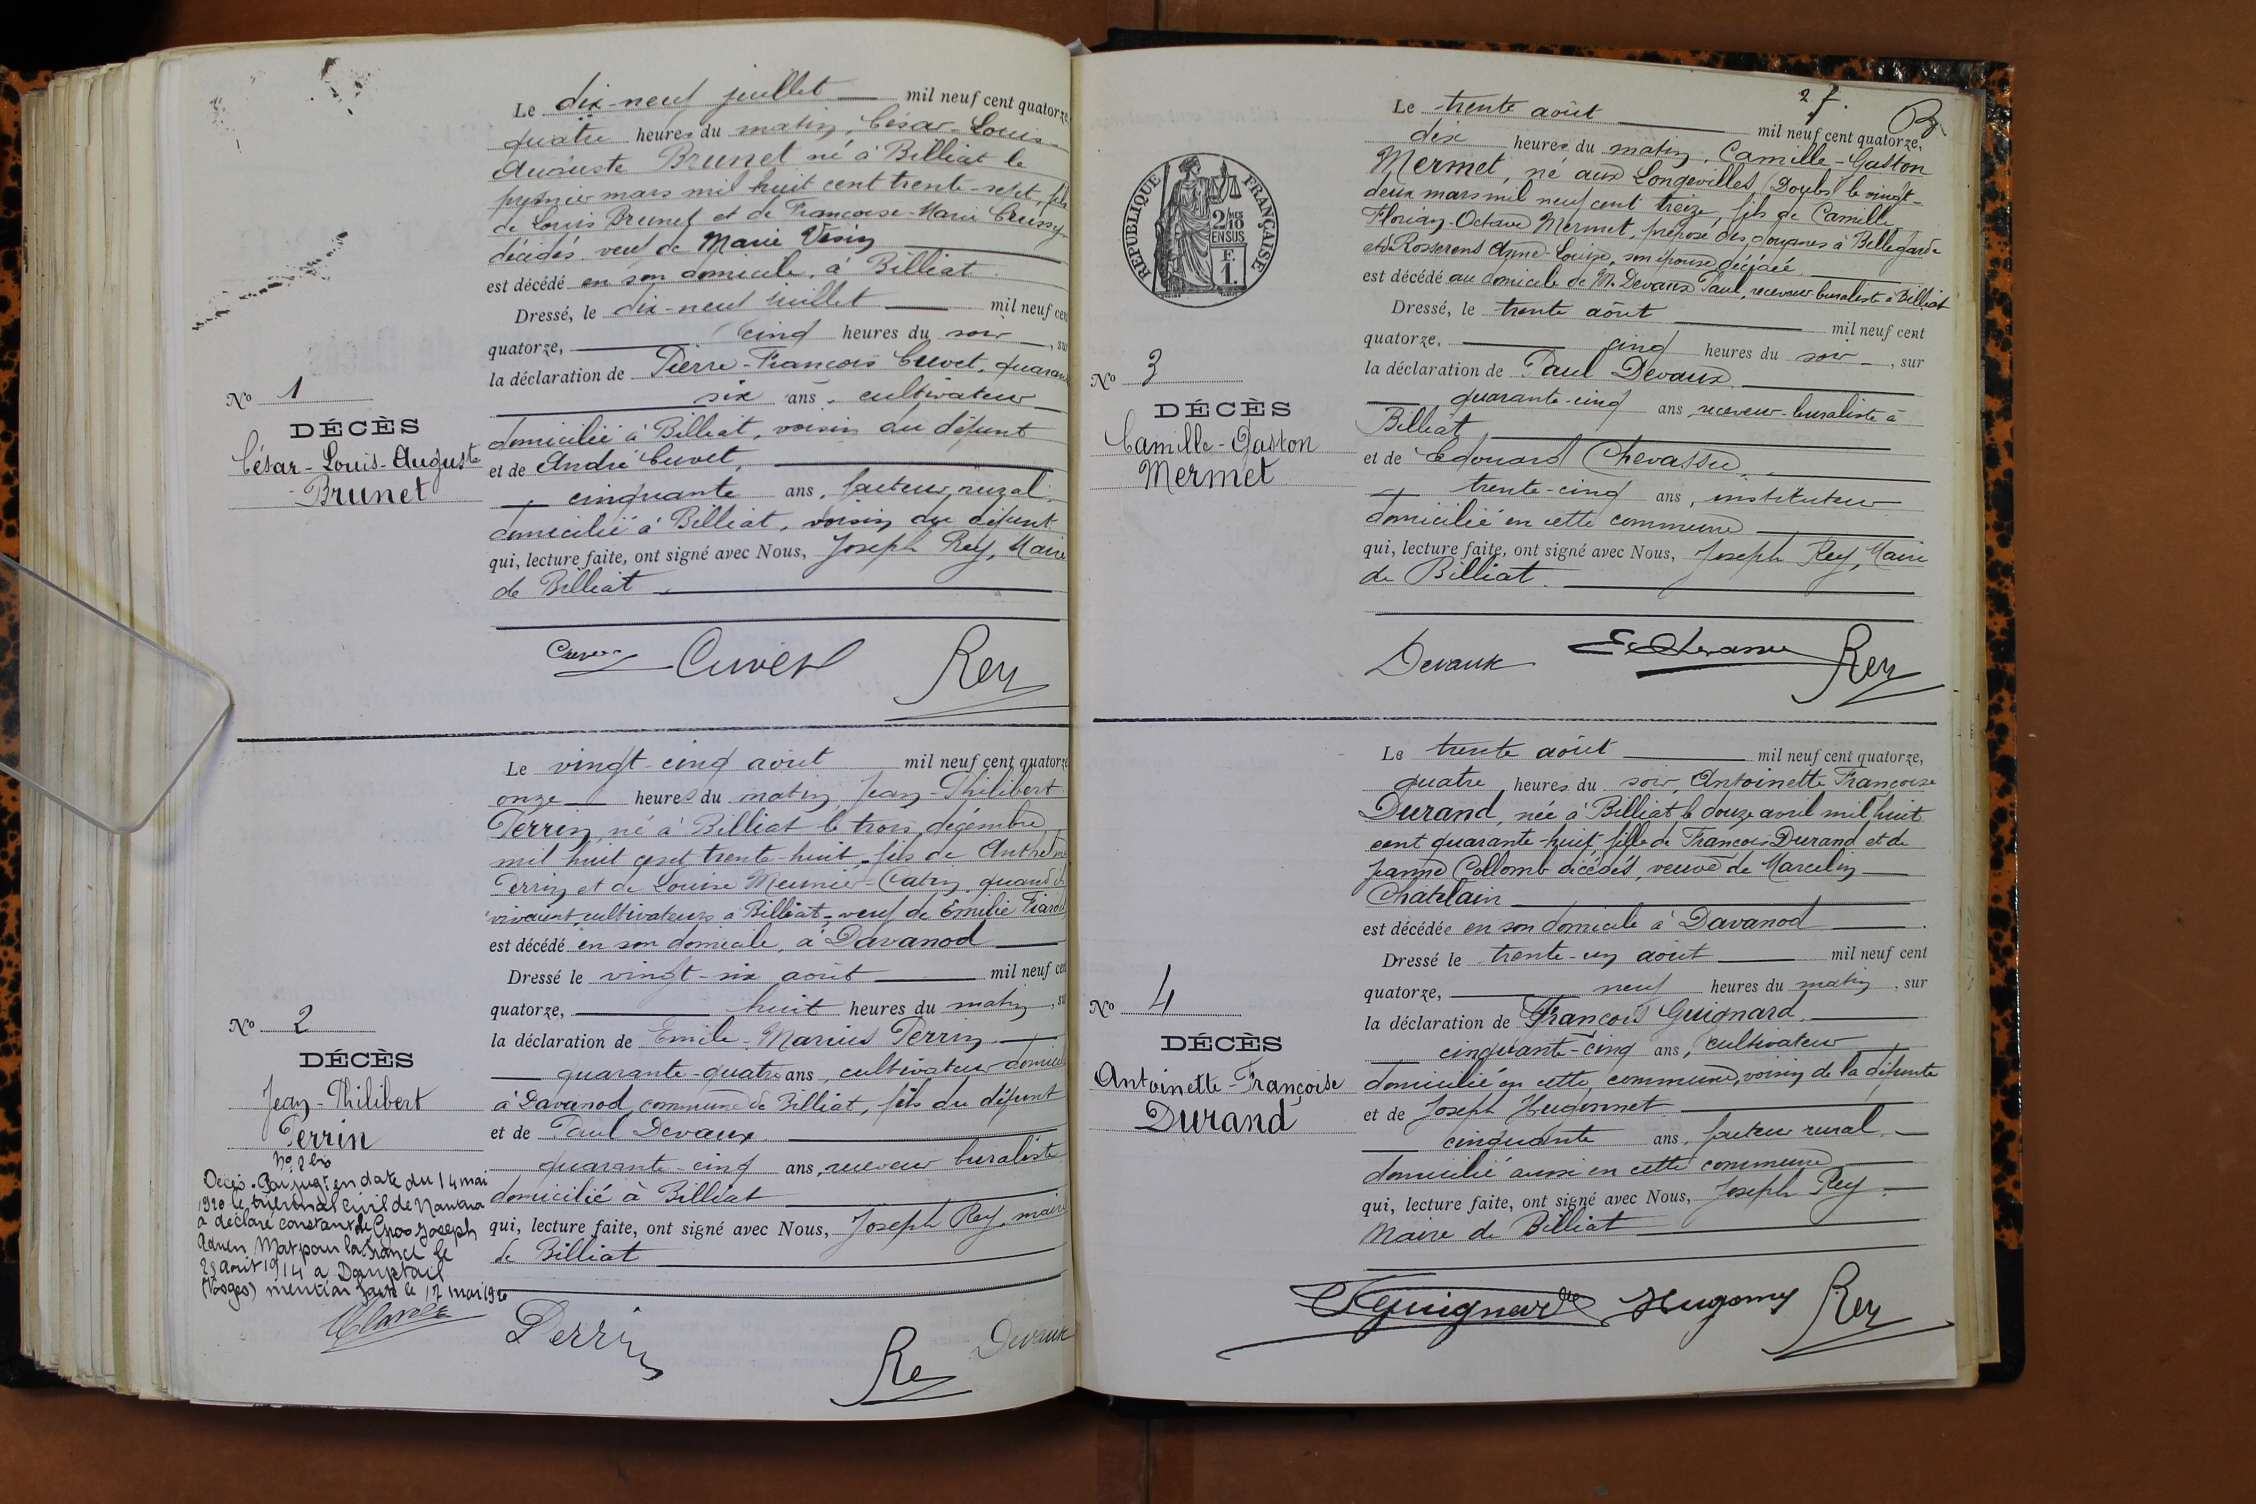 Le dix-neuf juillet mil neuf cent quatorze,
quatre heures du matin, César-Louis-
Auguste Brunet né à Billiat le
premier mars mil huit cent trente-sept, fils
de Louis Brunet et de Françoise-Marie
décédés, veuf de Marie Vésin
est décédé en son domicile, à Billiat.
Dressé, le dix-neuf juillet mil neuf cent
quatorze, cinq heures du soir, sur
la déclaration de Pierre-François Cuvet, quarante
six ans, cultivateur
domicilié à Billiat, voisin du défunt
et de André Cuvet,
cinquante ans, facteur rural,
domicilié à Billiat, voisin du défunt
qui, lecture faite, ont signé avec Nous, Joseph Rey, Maire
de Billiat.
Nº 1
DÉCÈS
César-Louis-Auguste
Brunet
Cuvet Rey
Le vingt-cinq août mil neuf cent quatorze
onze heures du matin, Jean-Philibert
Perrin, né à Billiat le trois décembre
mil huit cent trente-huit, fils de Anthelme
Perrin et de Louise Meunier-Catin, quand ils
vivaient cultivateurs à Billiat, veuf de Emilie
est décédé en son domicile, à Davanod
Dressé le vingt-six août mil neuf cent
quatorze, huit heures du matin, sur
la déclaration de Emile-Marius Perrin
quarante-quatre ans, cultivateur domicilié
à Davanod, commune de Billiat, fils du défunt
et de Paul Devaux
quarante-cinq ans, receveur buraliste
domicilié à Billiat
qui, lecture faite, ont signé avec Nous, Joseph Rey, maire
de Billiat
Nº 2
DÉCÈS
Jean-Philibert
Perrin
Nº 2 bis
Décès. Par jugt en date du 14 mai
1920 le tribunal civil de Nantua
a déclaré constant de Gros Joseph
Mort pour la France le
25 août 1914 à Domptail
(Vosges) mention faite le 17 mai 1920
Perrin Rey Devaux
27.
REPUBLIQUE FRANÇAISE
2/10 MES
EN SUS
F.
1.
Le trente août mil neuf cent quatorze,
dix heures du matin, Camille-Gaston
Mermet, né aux Longevilles (Doubs) le vingt-
deux mars mil neuf cent treize, fils de Camille
Florian-Octave Mermet, préposé des douanes à Bellegarde
et de Rosserens Anne-Louise, son épouse décédée
est décédé au domicile de M. Devaux Paul, receveur buraliste à Billiat
Dressé, le trente août mil neuf cent
quatorze, cinq heures du soir, sur
la déclaration de Paul Devaux
quarante-cinq ans, receveur-buraliste à
Billiat
et de Edouard Chevassu,
trente-cinq ans, instituteur
domicilié en cette commune
qui, lecture faite, ont signé avec Nous, Joseph Rey, Maire
de Billiat.
Nº 3
DÉCÈS
Camille-Gaston
Mermet
Devaux Rey
Le trente août mil neuf cent quatorze,
quatre heures du soir, Antoinette Françoise
Durand, née à Billiat le douze avril mil huit
cent quarante-huit, fille de François Durand et de
Jeanne Collomb décédés, veuve de Marcelin
Chatelain
est décédée en son domicile à Davanod
Dressé le trente-un août mil neuf cent
quatorze, neuf heures du matin, sur
la déclaration de François Guignard
cinquante-cinq ans, cultivateur
domicilié en cette commune, voisin de la défunte
et de Joseph Hugonnet
cinquante ans, facteur rural,
domicilié aussi en cette commune
qui, lecture faite, ont signé avec Nous, Joseph Rey,
Maire de Billiat
Nº 4
DÉCÈS
Antoinette-Françoise
Durand
Guignard Rey